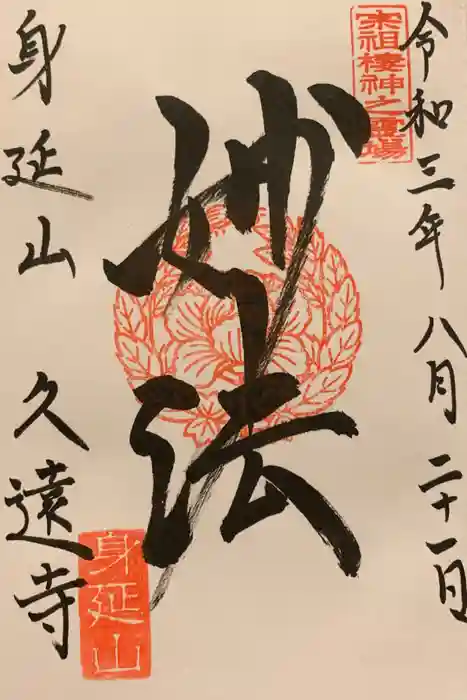 令和三年 八月 二十一日
宗祖棲神之霊場
妙法
身延山 久遠寺
身延山